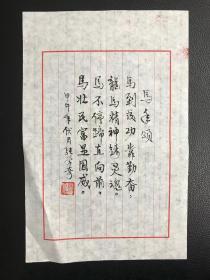 馬年頌
馬到成功靠勤奮，
龍馬精神鑄灵魂。
馬不停蹄直向前，
馬壯民富显国威。
甲午年